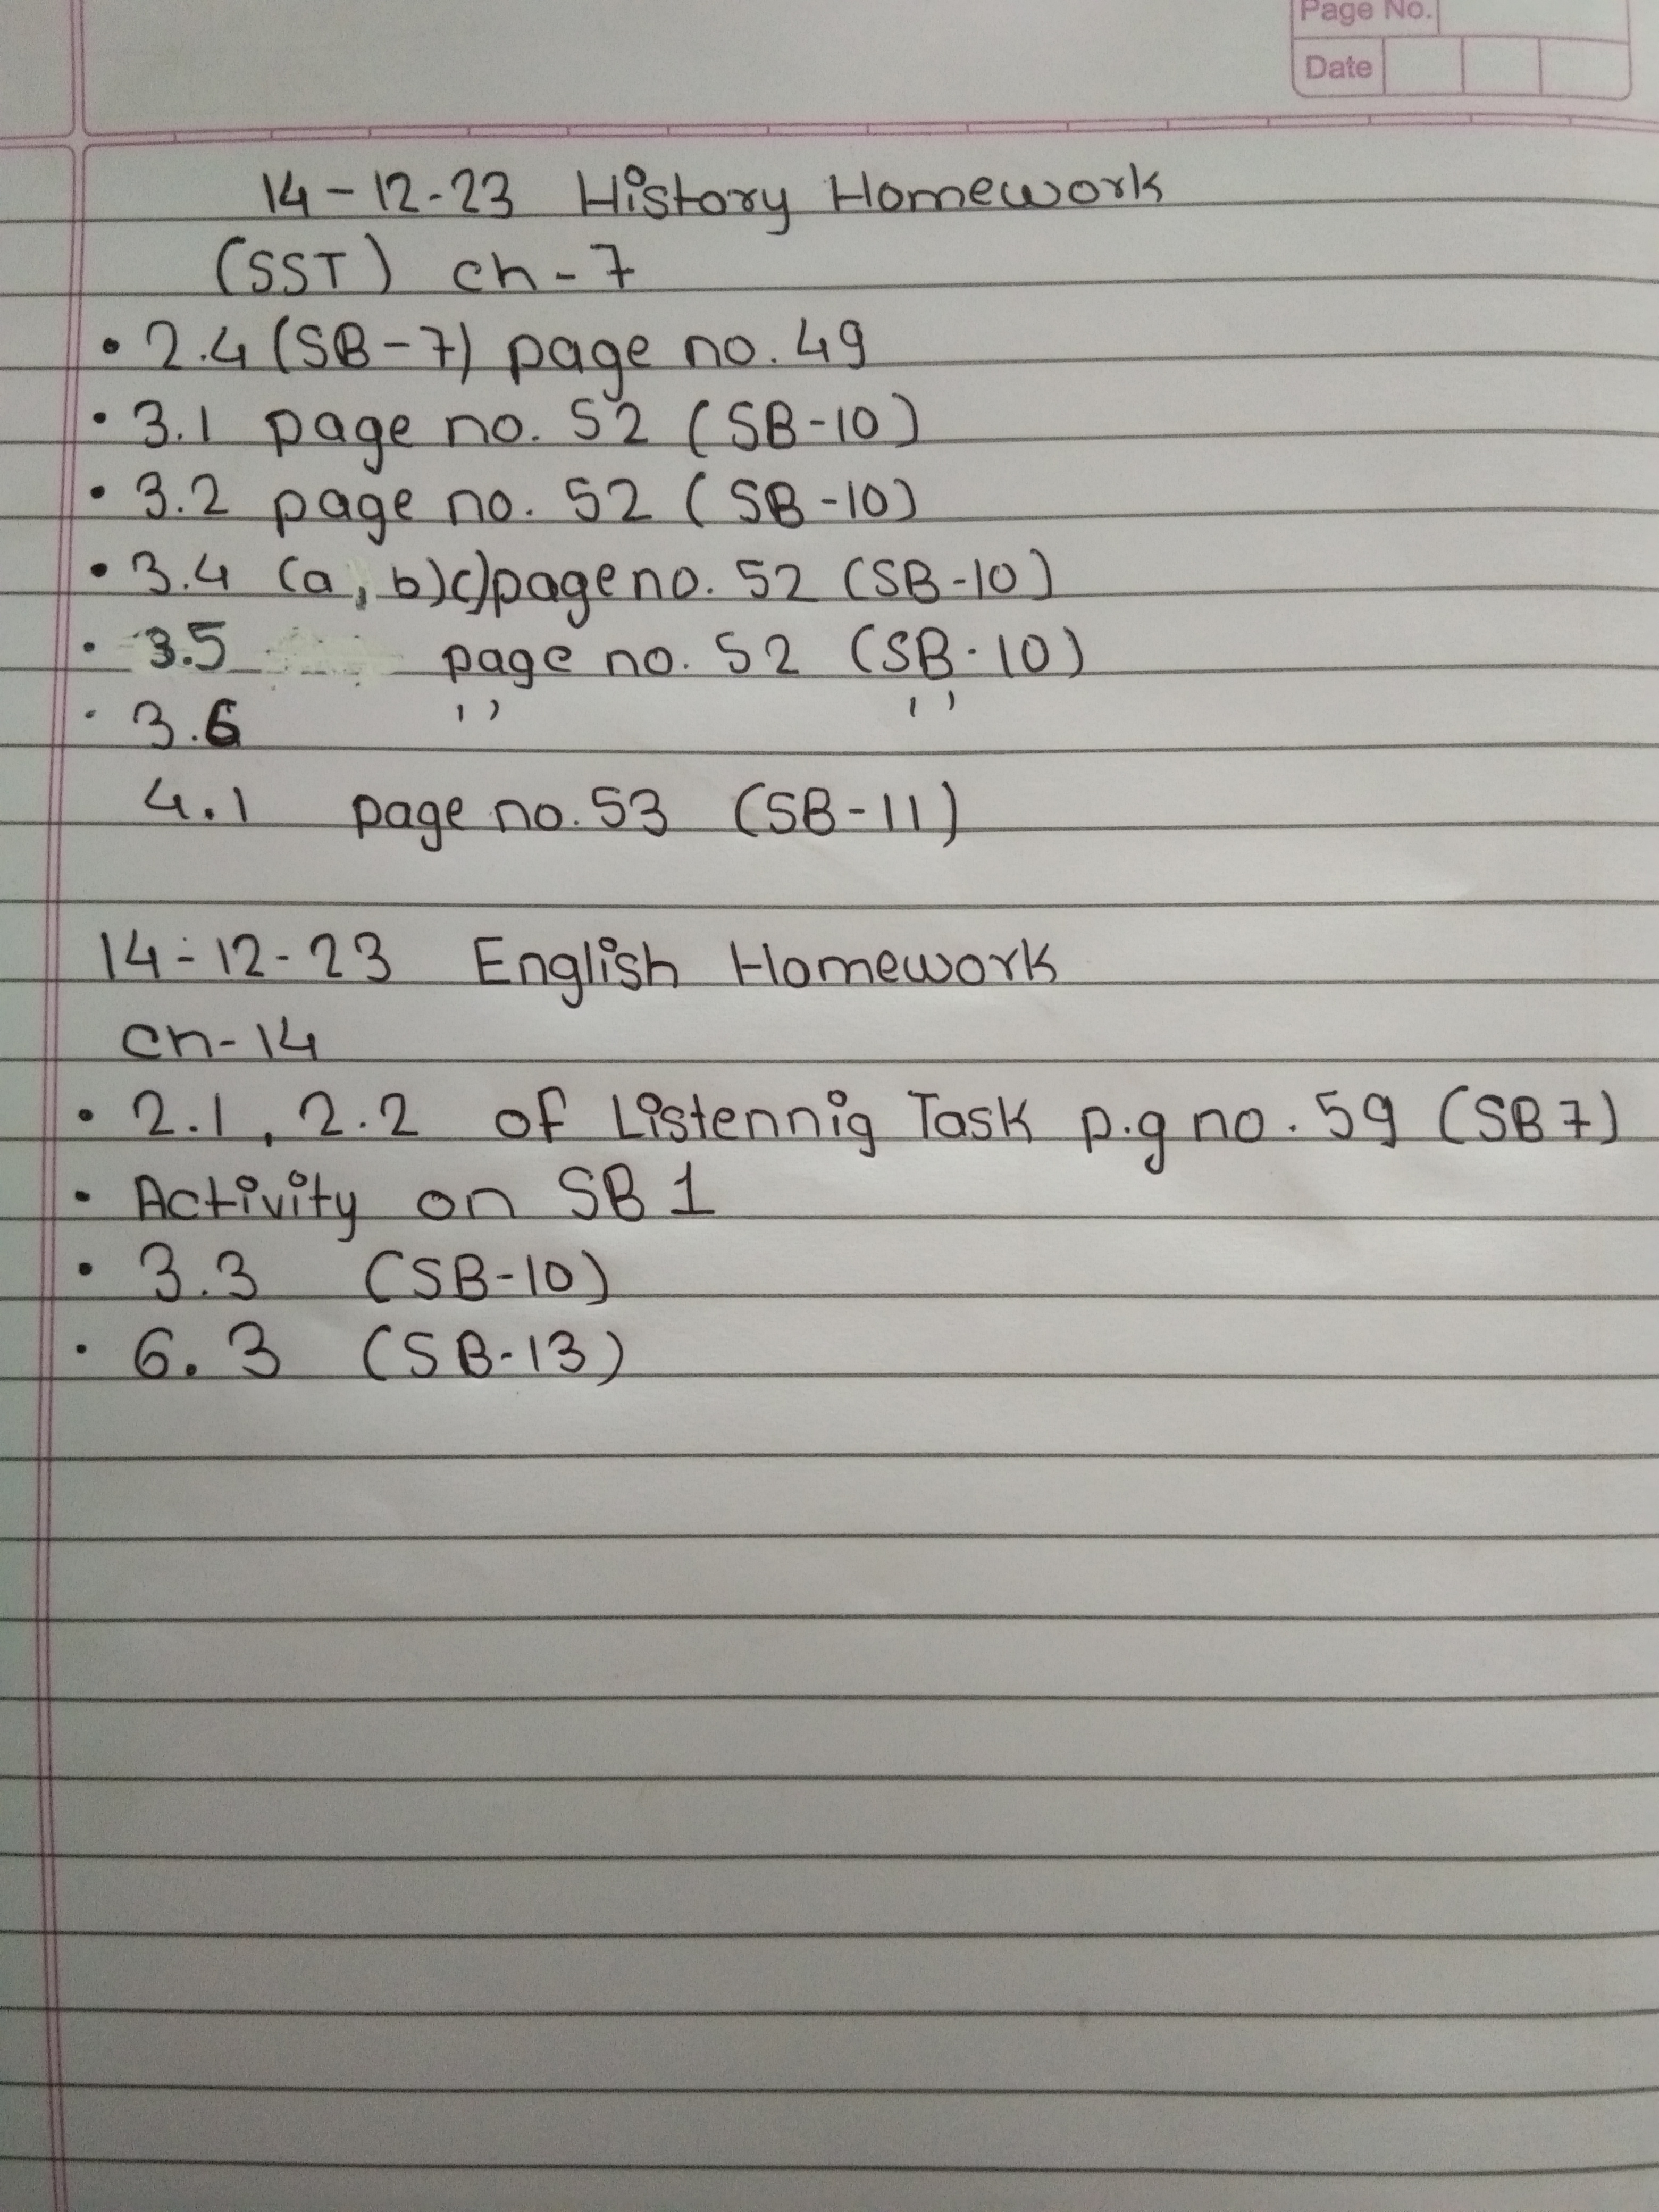 Page No.
Date
14-12-23 History Homework
(SST) ch-7
• 2.4 (SB-7) page no. 49
• 3.1 page no. 52 (SB-10)
• 3.2 page no. 52 (SB-10)
• 3.4 (a, b)c)page no. 52 (SB-10)
• 3.5 page no. 52 (SB-10)
• 3.6 '' ''
4.1 page no. 53 (SB-11)
14-12-23 English Homework
ch-14
• 2.1, 2.2 of Listennig Task p.g no. 59 (SB7)
• Activity on SB 1
• 3.3 (SB-10)
• 6.3 (SB-13)